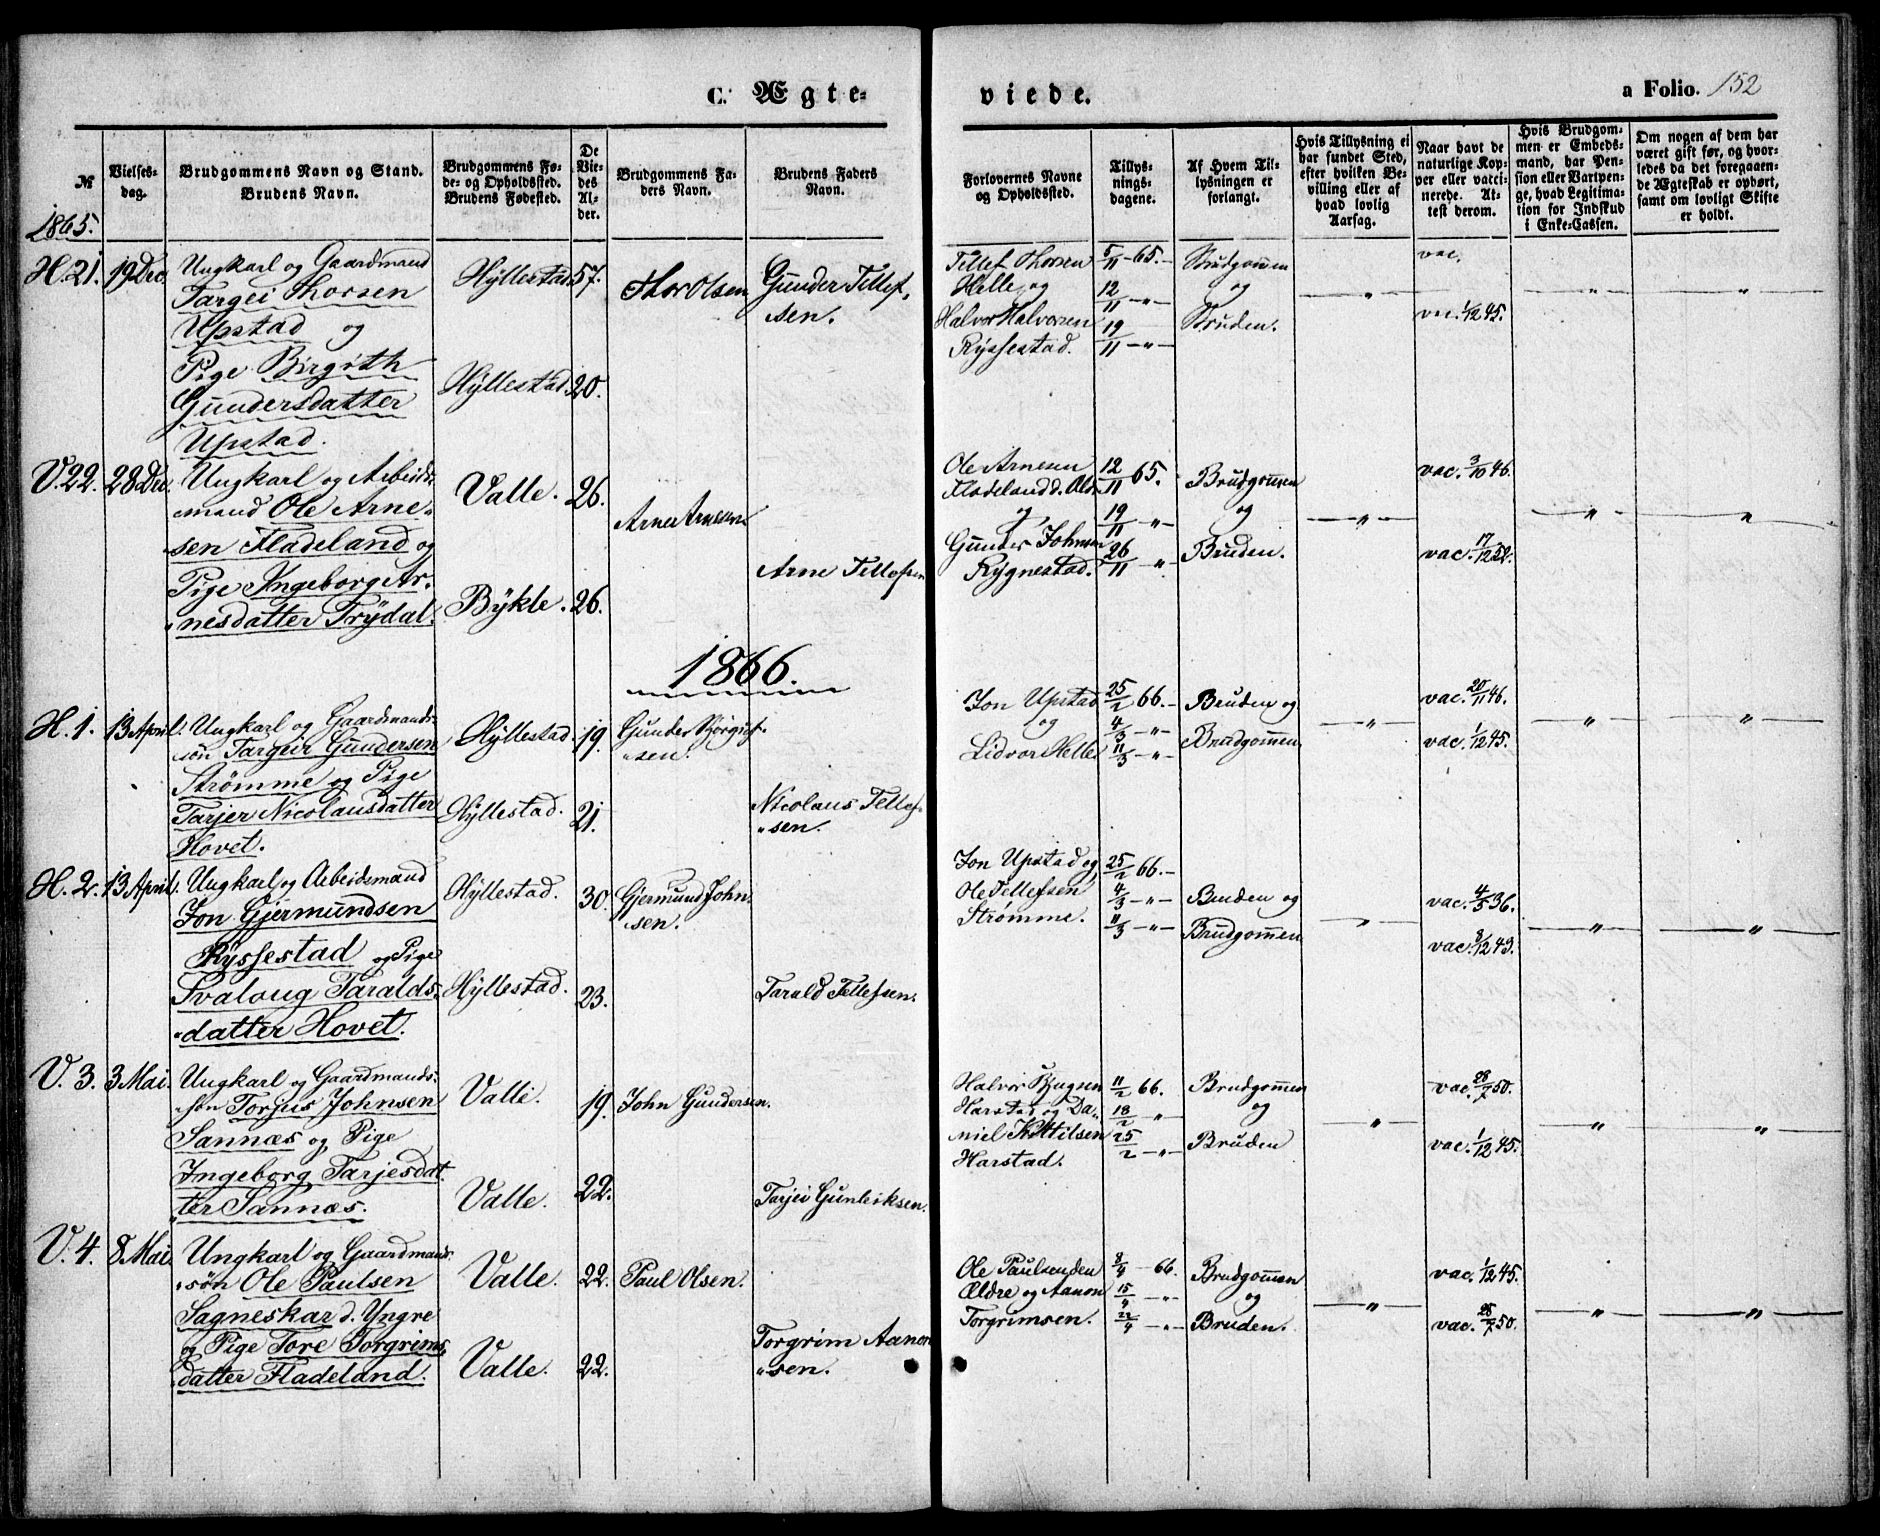 C. Ægte-
viede.
a Folio. 152
№
Vielses-
dag.
Brudgommens Navn og Stand.
Brudens Navn.
Brudgommens Fø-
de- og Opholdssted.
Brudens Fødested.
De
Vie-
des
Al-
der.
Brudgommens Fa-
ders Navn.
Brudens Faders
Navn.
Forlovernes Navne
og Opholdssted.
Tillys-
nings-
dagene.
Af Hvem Til-
lysningen er
forlangt.
Hvis Tillysning ei
har fundet Sted,
efter hvilken Be-
villing eller af
hvad lovlig
Aarsag.
Naar havt de
naturlige Kop-
per eller vacci-
nerede. At-
test derom.
Hvis Brudgom-
men er Embeds-
mand, har Pen-
sion eller Vartpen-
ge, hvad Legitima-
tion for Indskud
i Enke-Cassen.
Om nogen af dem har
været gift før, og hvor-
ledes da det foregaaen-
de Ægteskab er ophørt,
samt om lovligt Skifte
er holdt.
1865.
H. 21. 19 Dec. Ungkarl og Gaardmand
Targei Thorsen
Upstad og
Pige Birgith
Gundersdatter
Upstad.
Hyllestad. 57.
Hyllestad. 20.
Thor Olsen
Gunder Tellef-
sen.
Tellef Thorsen
Helle, og
Halvor Halvorsen
Ryssestad.
5/11 - 65. -
12/11 - " -
19/11 - " -
Brudgommen
og
Bruden.
"
vac.
vac. 1/12 45.
" "
V. 22. 28 Dec. Ungkarl og Arbeids-
mand Ole Arne-
sen Fladeland og
Pige Ingeborg Ar-
nesdatter Trydal.
Valle. 26.
Bykle. 26.
Arne Arnesen
Arne Tellefsen
Ole Arnesen
Fladeland d. Old.
og
Gunder Johnsen
Rygnestad.
12/11 65.
19/11 - "
26/11 - "
Brudgommen
og
Bruden.
"
vac. 3/10 46.
vac. 17/12 52.
" "
1866.
H. 1. 13 April. Ungkarl og Gaardmands-
søn Tarjer Gundersen
Strømme og Pige
Tarjer Nicolausdatter
Hovet.
Hyllestad. 19.
Hyllestad. 21.
Gunder Bjørguf-
sen.
Nicolaus Tellef-
sen.
Jon Upstad
og
Lidvor Helle
25/2 66. -
4/3 - " -
11/3 - " -
Bruden og
Brudgommen.
"
vac. 20/11 46.
vac. 1/12 45.
" "
H. 2. 13 April. Ungkarl og Arbeidsmand
Jon Gjermundsen
Ryssestad og Pige
Svaloug Taralds-
datter Hovet.
Hyllestad. 30.
Hyllestad. 23.
Gjermund John-
sen.
Tarald Tellefsen.
Jon Upstad og
Ole Tellefsen
Strømme.
25/2 66. -
4/3 - " -
11/3 - " -
Bruden og
Brudgommen
"
vac. 4/5 36.
vac. 8/12 43.
" "
V. 3. 3 Mai. Ungkarl og Gaardmands-
søn Torjus Johnsen
Sannæs og Pige
Ingeborg Tarjesdat-
ter Sannæs.
Valle. 19.
Valle. 22.
John Gundersen.
Tarjei Gunleiksen.
Halvor Bugsen
Harstad og Da-
niel Kittilsen
Harstad.
11/2 66.
18/2 - "
25/2 - " -
Brudgommen
og
Bruden
"
vac. 28/7 50.
vac. 1/12 45.
" "
V. 4. 8 Mai. Ungkarl og Gaardmands-
søn Ole Paulsen
Sagneskar d. Yngre
og Pige Tore Torgrims-
datter Fladeland.
Valle. 22.
Valle. 22.
Paul Olsen.
Torgrim Aanon-
sen.
Ole Paulsen den
Ældre og Aanon
Torgrimsen.
8/4 - 66.
15/4 - " -
22/4 - " -
Brudgommen
og
Bruden.
"
vac. 1/12 45.
vac. 28/7 50.
" "